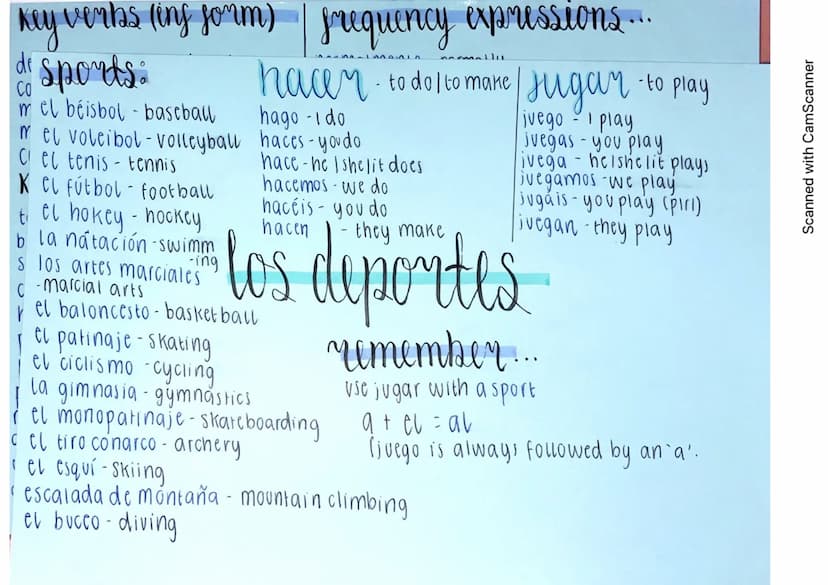 Key verbs (inf form)
frequency expressions...
sports:
el béisbol - baseball
el voleibol - volleyball
el tenis - tennis
el fútbol - football
el hokey - hockey
la nátación - swimm
-ing
los artes marciales
- marcial arts
el baloncesto - basketball
el patinaje - skating
el ciclismo - cycling
la gimnasia - gymnastics
el monopatinaje - skateboarding
el tiro conarco - archery
el esquí - skiing
escalada de móntaña - mountain climbing
el bucco - diving
hacer - to do/to make
hago - I do
haces - you do
hace - he/she/it does
hacemos - we do
hacéis - you do
hacen - they make
jugar - to play
juego - I play
juegas - you play
juega - he/she/it plays
juegamos - we play
jugáis - you play (plrl)
juegan - they play
los deportes
remember...
use jugar with a sport
a + el = al
(juego is always followed by an 'a'.
Scanned with CamScanner